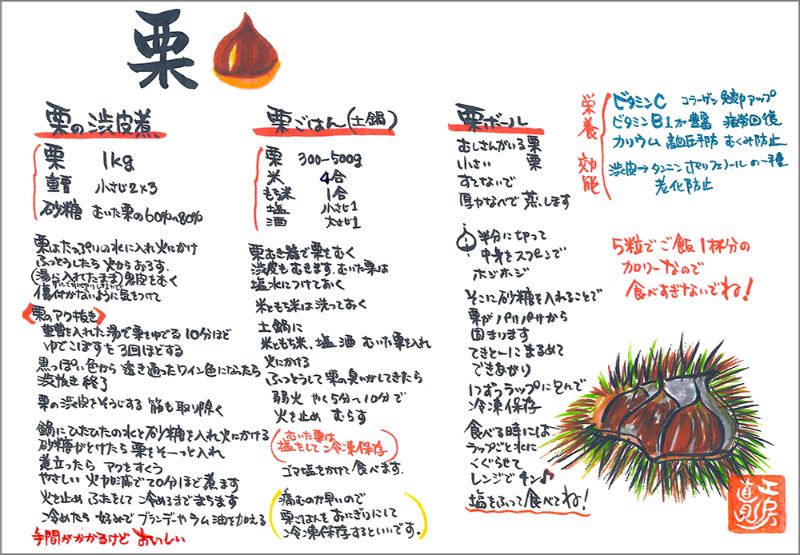 栗
栗の渋皮煮
栗 1kg
重曹 小さじ2×3
砂糖 むいた栗の60%〜80%
栗はたっぷりの水に入れ火にかけ
ふっとうしたら火からおろす.
(湯に入れたまま)鬼皮をむく
傷付かないように気をつけて
《栗のアク抜き》
重曹を入れた湯で栗をゆでる 10分ほど
ゆでこぼすを3回ほどする
黒っぽい色から透き通ったワイン色になったら
渋抜き終了
栗の渋皮をそうじする 筋も取り除く
鍋にひたひたの水と砂糖を入れ火にかける
砂糖がとけたら栗をそーっと入れ
煮立ったら アクをすくう
やさしい火加減で20分ほど煮ます
火を止め ふたをして 冷めるまでまちます
冷めたら 好みで ブランデーやラム油を加える
手間がかかるけど おいしい
栗ごはん(土鍋)
栗 300〜500g
米 4合
もち米 1合
塩 小さじ1
酒 大さじ1
栗むき器で栗をむく
渋皮もむきます.むいた栗は
塩水につけておく
米ともち米は洗っておく
土鍋に
米ともち米、塩 酒 むいた栗を入れ
火にかける
ふっとうして 栗の臭いがしてきたら
弱火 やく5分〜10分で
火を止め むらす
(むいた栗は
塩をして冷凍保存)
ゴマ塩をかけて食べます.
(痛むのが早いので
栗ごはんをおにぎりにして
冷凍保存するといいです.)
栗ボール
むしさんがいる栗
小さい 栗
すてないで
厚なべで蒸します
半分に切って
中身をスプーンで
ホジホジ
そこに砂糖を入れることで
栗がパサパサから
固まります
てきとーにまるめて
できあがり
1つずつラップに包んで
冷凍保存
食べる時には
ラップごと水に
くぐらせて
レンジでチン♪
塩をふって食べてね!
栄養 効能
ビタミンC コラーゲン 免疫アップ
ビタミンB1が豊富 疲労回復
カリウム 高血圧予防 むくみ防止
渋皮→タンニン ポリフェノールの一種
老化防止
5粒でご飯1杯分の
カロリーなので
食べすぎないでね!
工房
直見